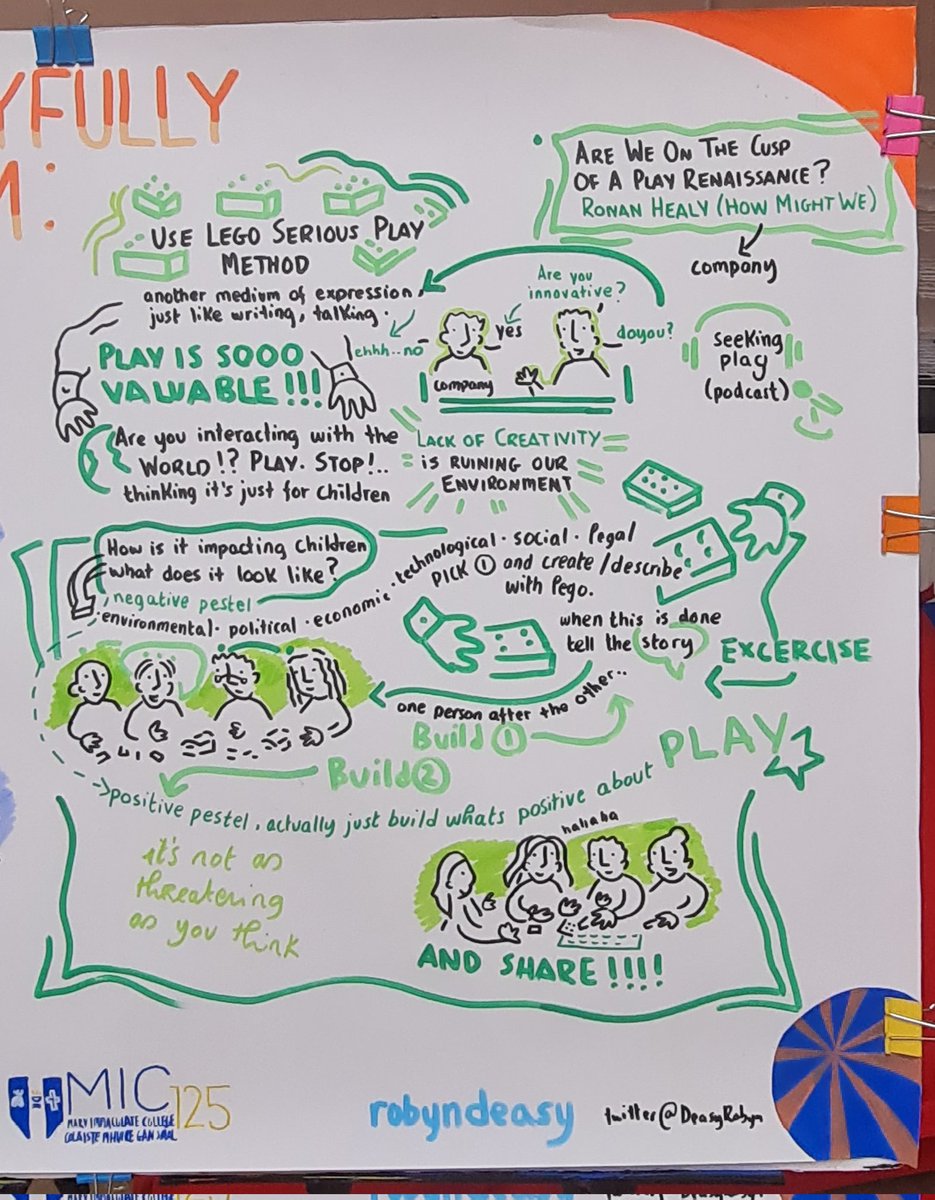 YFULLY
M:
ARE WE ON THE CUSP
OF A PLAY RENAISSANCE?
RONAN HEALY (HOW MIGHT WE)
company
USE LEGO SERIOUS PLAY
METHOD
another medium of expression,
just like writing, talking.
Are you
innovative?
yes
doyou?
ehhh..no
company
seeking
play
(podcast)
PLAY IS SOOO
VALUABLE!!!
Are you interacting with the
WORLD!? PLAY. STOP!..
thinking it's just for children
LACK OF CREATIVITY
IS RUINING OUR
ENVIRONMENT
How is it impacting children
what does it look like?
negative pestel
environmental. political. economic. technological. social. legal
PICK 1 and create/describe
with Pego.
when this is done
tell the story
EXCERCISE
one person after the other..
Build 1
Build 2
positive pestel, actually just build whats positive about PLAY
it's not as
threatening
as you think
hahaha
AND SHARE!!!!
MIC 125
MARY IMMACULATE COLLEGE
COLAISTE MHUIRE GAN SMAL
robyndeasy
twitter@DeasyRobyn